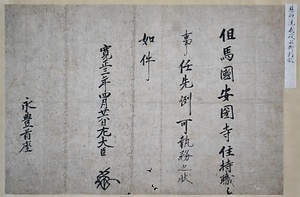 但馬國安國寺住持職之
事任先例可執務之状
如件
寛正三年四月廿一日左大臣
永豊首座